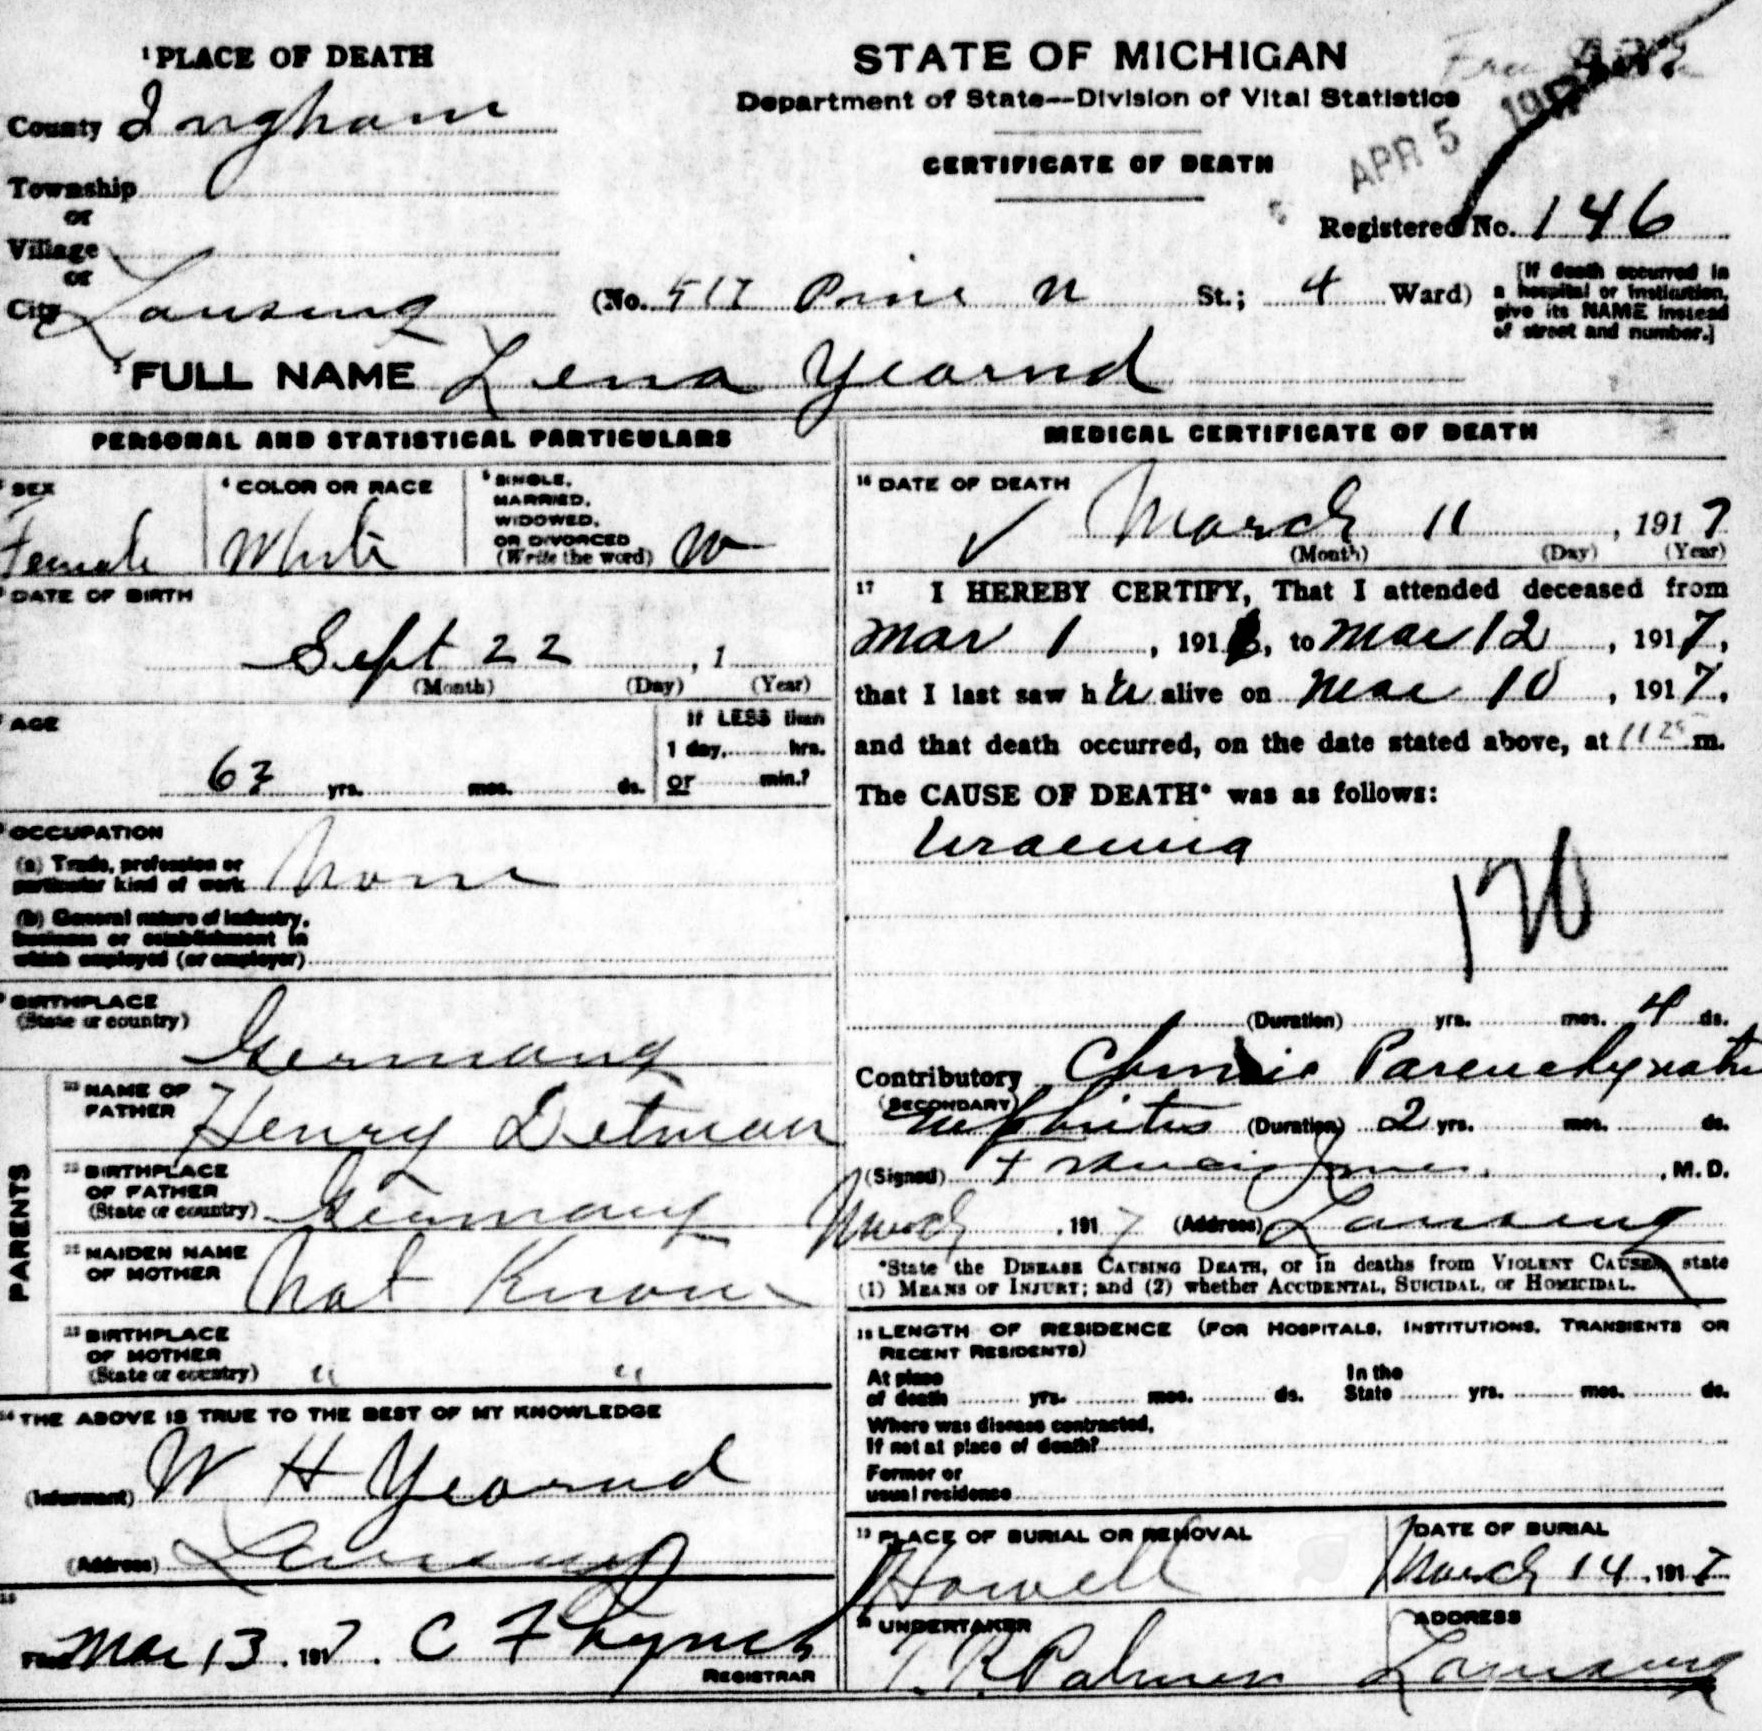 ¹PLACE OF DEATH
County Ingham
Township
or
Village
or
City Lansing
STATE OF MICHIGAN
Department of State—Division of Vital Statistics
CERTIFICATE OF DEATH
APR 5
Registered No. 146
(No. 517 Pine N St.; 4 Ward)
[If death occurred in
a hospital or institution,
give its NAME instead
of street and number.]
²FULL NAME Lena Yearnd
PERSONAL AND STATISTICAL PARTICULARS
³ SEX
Female
⁴ COLOR OR RACE
White
⁵ SINGLE,
MARRIED,
WIDOWED,
OR DIVORCED
(Write the word) W
DATE OF BIRTH
Sept 22 , 1
(Month) (Day) (Year)
AGE
63 yrs. mos. ds.
If LESS than
1 day, hrs.
or min.?
OCCUPATION
(a) Trade, profession or
particular kind of work None
(b) General nature of industry,
business or establishment in
which employed (or employer)
BIRTHPLACE
(State or country)
Germany
PARENTS
¹⁰ NAME OF
FATHER Henry Detman
¹¹ BIRTHPLACE
OF FATHER
(State or country) Germany
¹² MAIDEN NAME
OF MOTHER Not Known
¹³ BIRTHPLACE
OF MOTHER
(State or country) " "
¹⁴ THE ABOVE IS TRUE TO THE BEST OF MY KNOWLEDGE
(Informant) W H Yearnd
(Address) Lansing
¹⁵
Filed Mar 13, 1917. C F Lynch
REGISTRAR
MEDICAL CERTIFICATE OF DEATH
¹⁶ DATE OF DEATH
✓ March 11 , 1917
(Month) (Day) (Year)
¹⁷ I HEREBY CERTIFY, That I attended deceased from
Mar 1 , 191 , to Mar 12 , 1917,
that I last saw her alive on Mar 10 , 1917,
and that death occurred, on the date stated above, at 11 25 m.
The CAUSE OF DEATH* was as follows:
Uraemia
120
(Duration) yrs. mos. 4 ds.
Contributory Chronic Parenchymatus
(SECONDARY)
Nephritus (Duration) 2 yrs. mos. ds.
(Signed) Francis Jones , M.D.
March , 1917 (Address) Lansing
*State the DISEASE CAUSING DEATH, or in deaths from VIOLENT CAUSES, state
(1) MEANS OF INJURY; and (2) whether ACCIDENTAL, SUICIDAL, or HOMICIDAL.
¹⁸ LENGTH OF RESIDENCE (FOR HOSPITALS, INSTITUTIONS, TRANSIENTS OR
RECENT RESIDENTS)
At place
of death yrs. mos. ds.
In the
State yrs. mos. ds.
Where was disease contracted,
If not at place of death?
Former or
usual residence
¹⁹ PLACE OF BURIAL OR REMOVAL
Howell
DATE OF BURIAL
March 14, 1917
²⁰ UNDERTAKER
T. R. Palmer
ADDRESS
Lansing